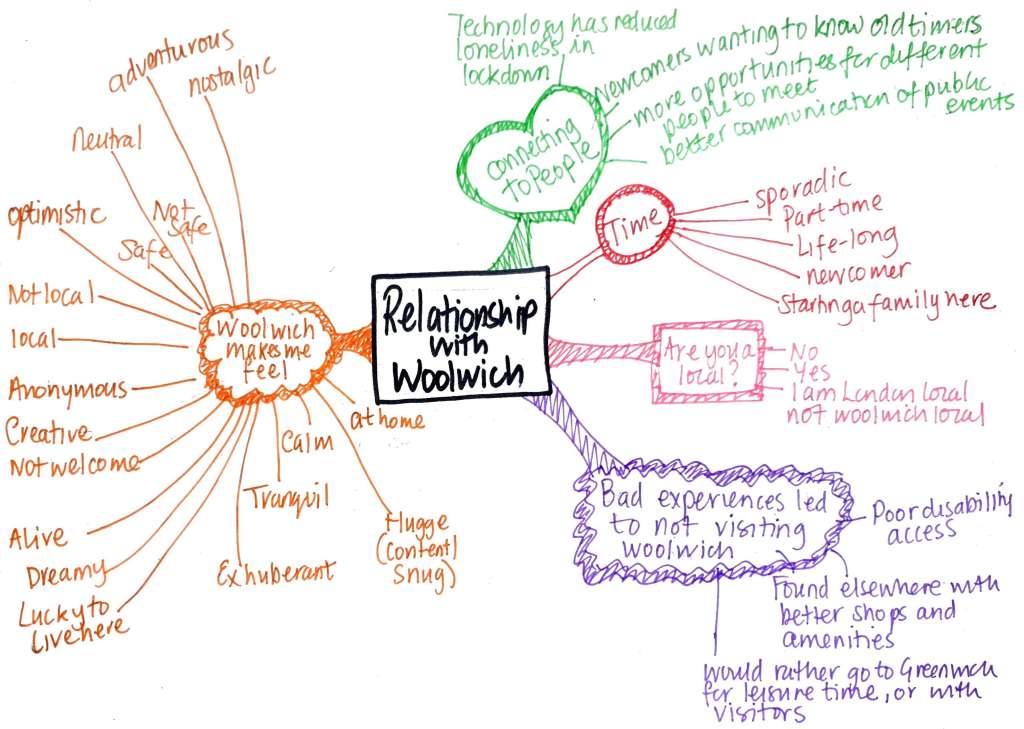 Relationship
with
Woolwich
Woolwich
makes me
feel
adventurous
nostalgic
Neutral
optimistic
Not
Safe
Safe
Not local
local
Anonymous
Creative
Not welcome
Alive
Dreamy
Lucky to
Live here
Exhuberant
Tranquil
Calm
at home
Hugge
(content)
snug)
Connecting
to People
Technology has reduced
loneliness in
lockdown
Newcomers wanting to know old timers
more opportunities for different
people to meet
better communication of public
events
Time
sporadic
Part-time
Life-long
newcomer
Starting a family here
Are you a
local?
No
Yes
I am London local
not woolwich local
Bad experiences led
to not visiting
woolwich
Poor disability
access
Found elsewhere with
better shops and
amenities
would rather go to Greenwich
for leisure time, or with
visitors